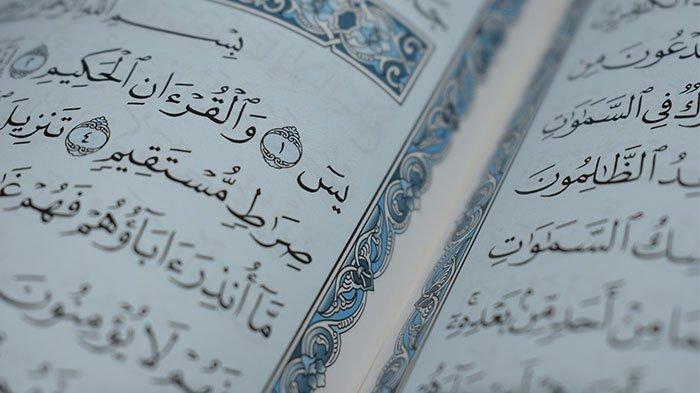 دْعُونَ مِن
كٌ فِي ٱلسَّمَٰوَٰتِ
دُ ٱلظَّٰلِمُونَ
سِكُ ٱلسَّمَٰوَٰتِ
مِنْ أَحَدٍ مِّنۢ بَعْدِهِۦٓ
بِسْمِ
يسٓ ١ وَٱلْقُرْءَانِ ٱلْحَكِيمِ ٢
صِرَٰطٍ مُّسْتَقِيمٍ ٤ تَنزِيلَ
مَّآ أُنذِرَ ءَابَآؤُهُمْ فَهُمْ
فَهُمْ لَا يُؤْمِنُونَ